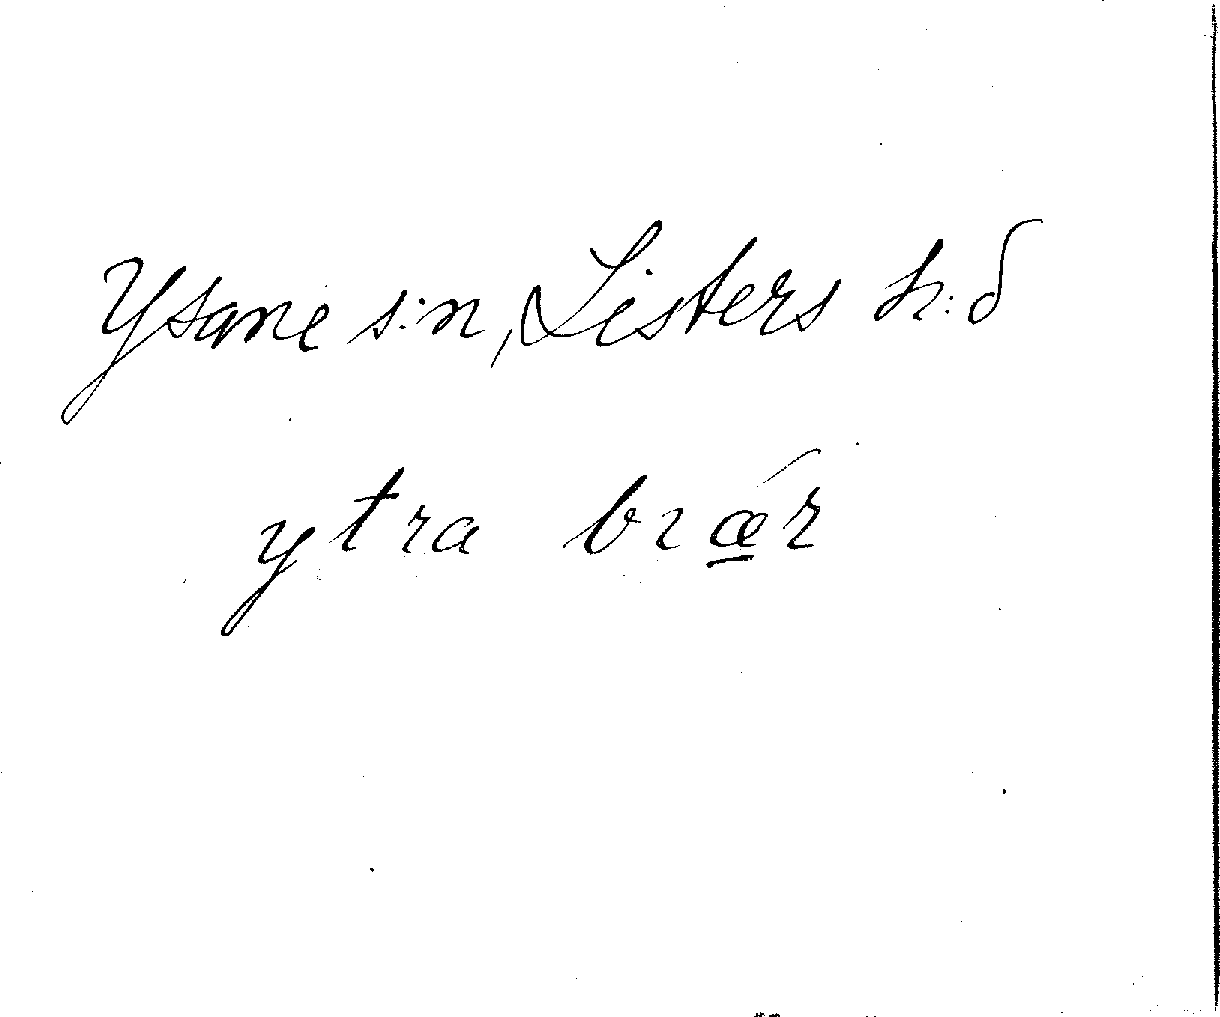 Ysane s:n, Listers h:d
ytra bræ̲´r